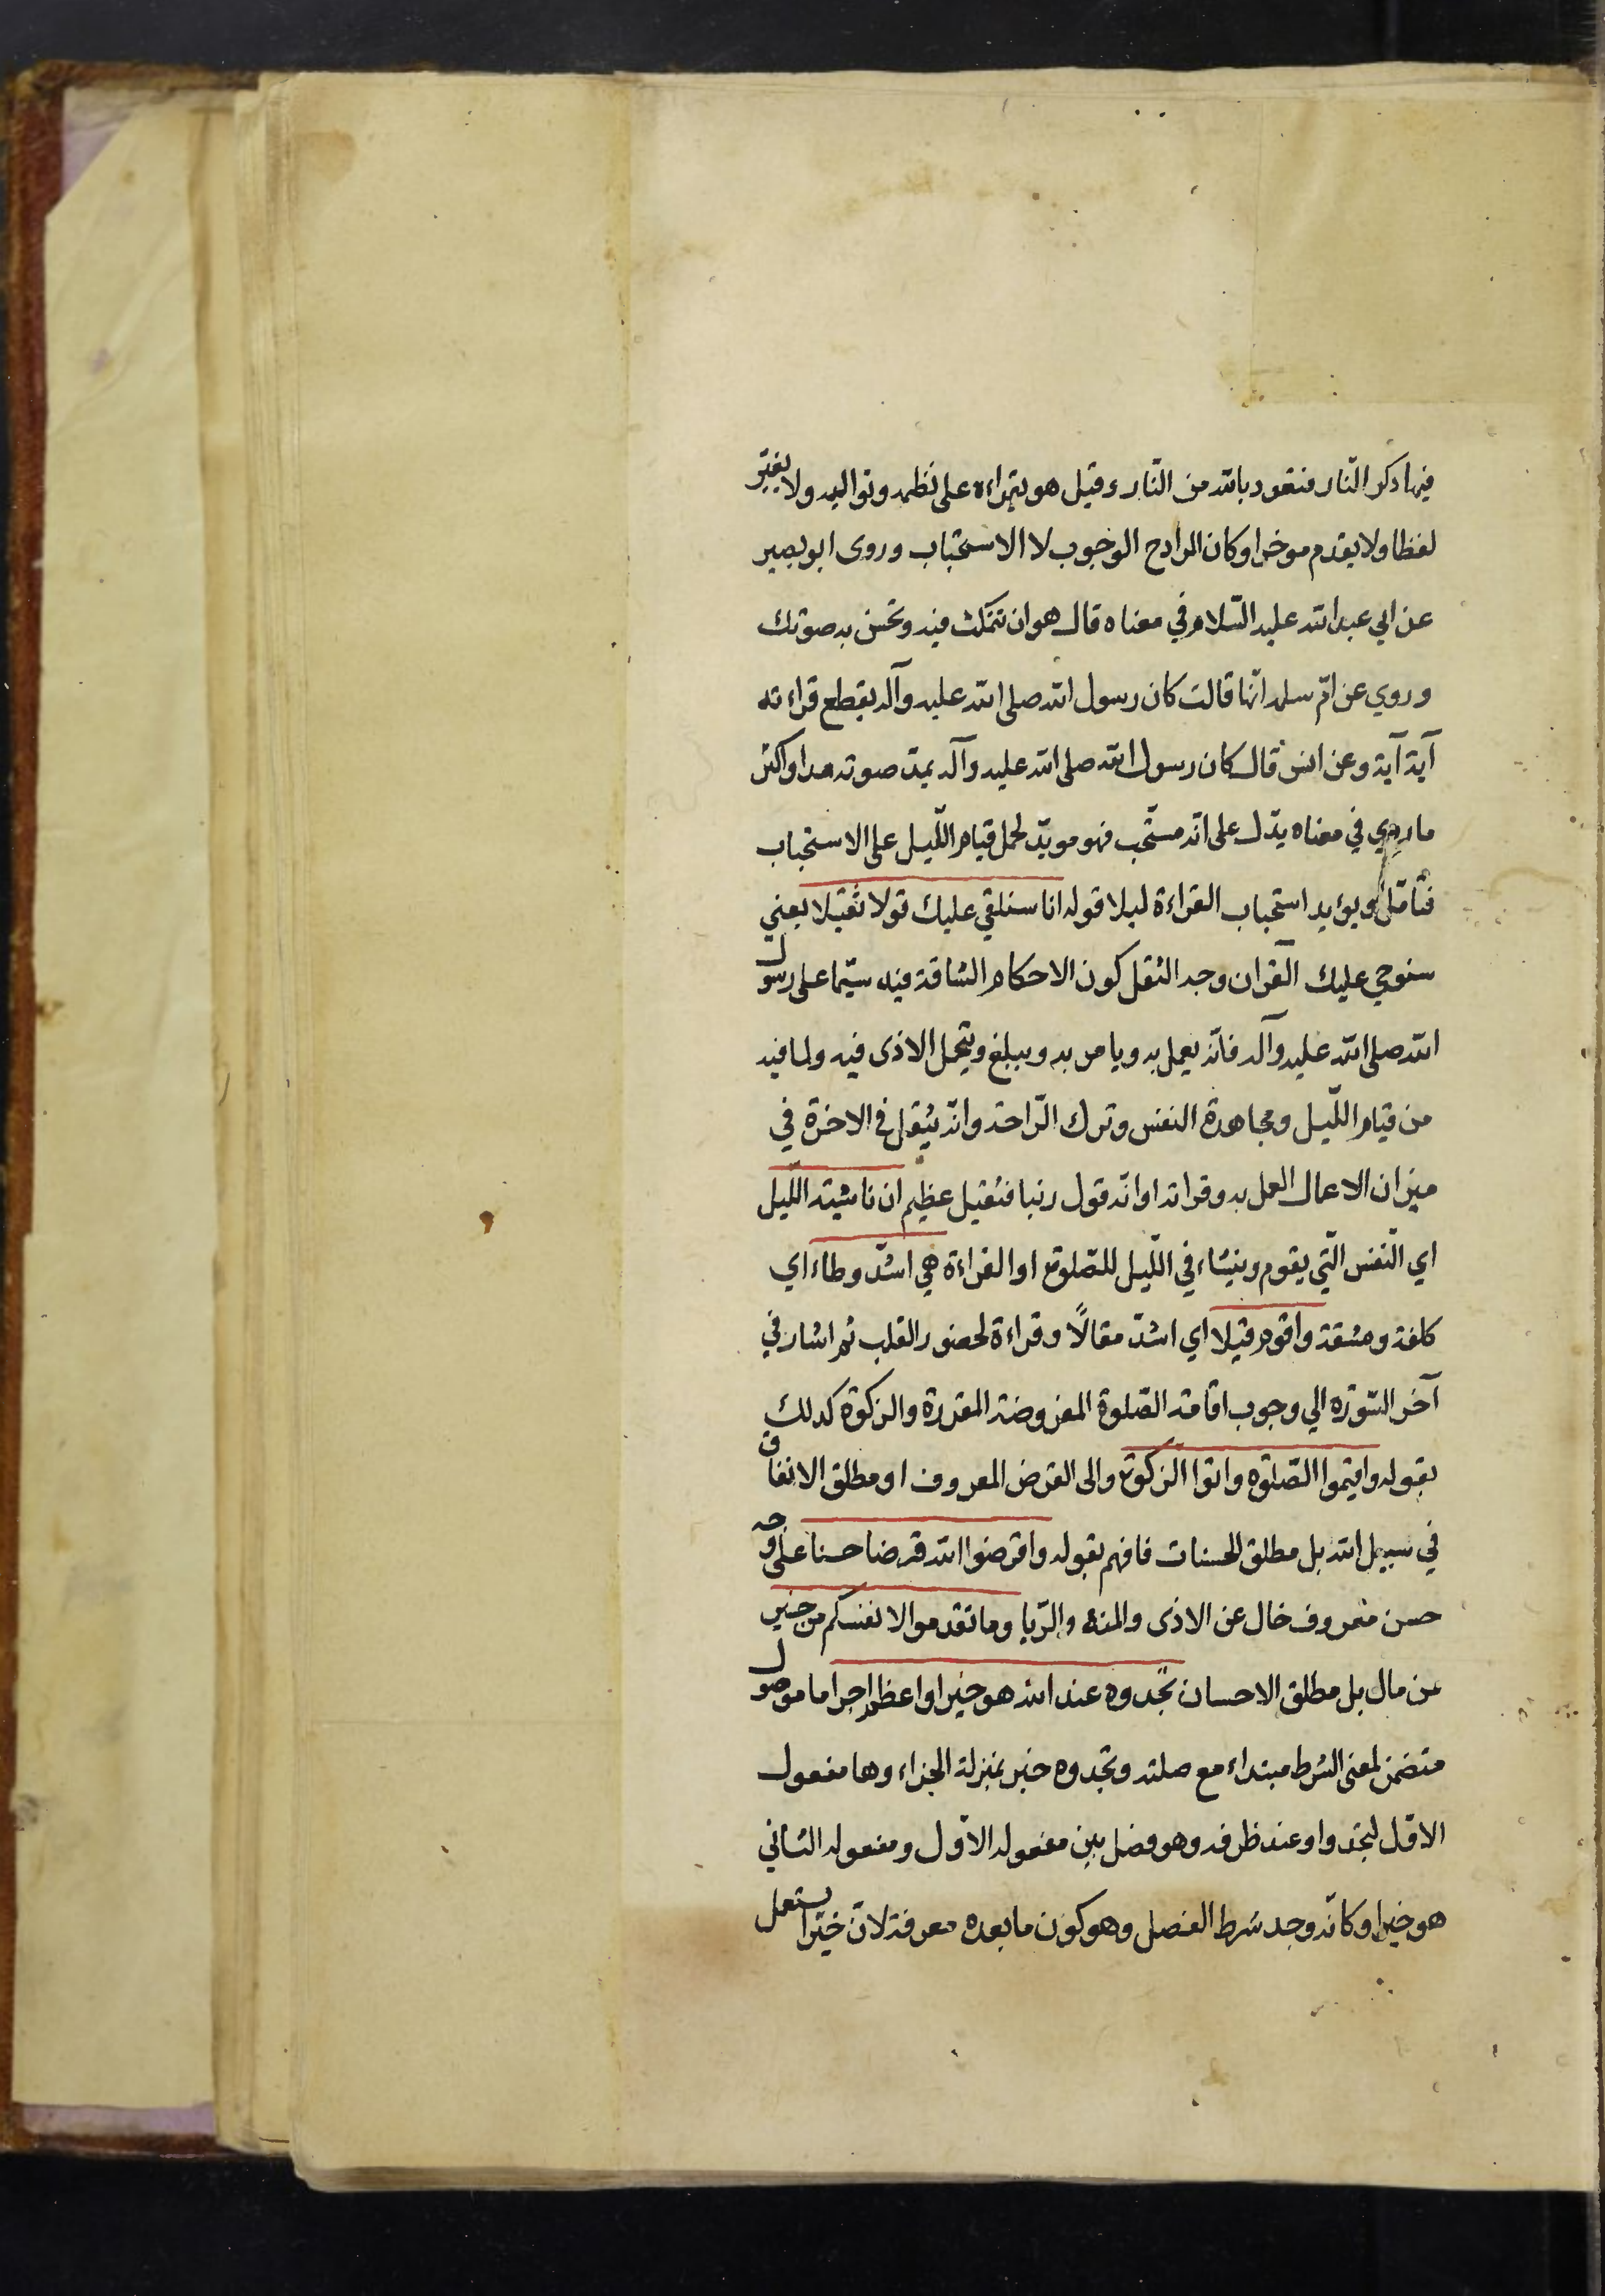 فيها ذكر النّار فتعوذ بالله من النّار وقيل هو يقراءه على نظمه وتواليه ولا يغيّر
لفظا ولا يقدم موخرا وكان المراد ح الوجوب لا الاستحباب وروى ابو بصير
عن ابي عبد الله عليه السّلام في معناه قال هو ان تتمكث فيه وتحسن به صوتك
وروي عن امّ سلمه انّها قالت كان رسول الله صلى الله عليه وآله يقطع قراءته
آية آية وعن انس قال كان رسول الله صلى الله عليه وآله يمدّ صوته مدا واكثر
ما روي في معناه يدّل على انّه مستحّب فهو مويدّ لحمل قيام اللّيل على الاستحباب
فتأمّل ويؤيد استحباب القراءة ليلا قوله انا سنلقي عليك قولا ثقيلا يعني
سنوحي عليك القرآن وجه الثقل كون الاحكام الشاقة فيه سيّما على رسول
الله صلى الله عليه وآله فانّه يعمل به ويامر به ويبلغ ويتحمل الاذى فيه ولما فيه
من قيام اللّيل ومجاهدة النفس وترك الرّاحة وانّه يثقل في الاخرة في
ميزان الاعمال العمل به وقراته او انّه قول ربنا فثقيل عظيم ان ناشيئة اللّيل
اي النّفس الّتي يقوم وينشاء في اللّيل للصّلوة او القراءة هي اشدّ وطاء اي
كلفة ومشقة واقوم قيلا اي اشدّ مقالًا وقراءة لحضور القلب ثم اشار في
آخر السّورة الي وجوب اقامة الصّلوة المفروضة المقررة والزكوة كذلك
بقوله واقيموا الصّلوة واتوا الزكوة والى القرض المعروف او مطلق الانفاق
في سبيل الله بل مطلق الحسنات فافهم بقوله واقرضوا الله قرضا حسنا على وجه
حسن معروف خال عن الاذى والمنة والرّيا وما تقدموا لانفسكم من خير
من مال بل مطلق الاحسان تجدوه عند الله هو خيرا واعظم اجرا ما موصول
متضمن لمعنى الشرط مبتداء مع صلته وتجدوه خبر بمنزلة الجزاء وها مفعول
الاوّل لتجدوا وعند ظرفه وهو فصل بين مفعوله الاوّل ومفعوله الثاني
هو خيرا وكانّه وجد شرط الفصل وهو كون ما بعده معرفة لانّ خيرا يستعمل